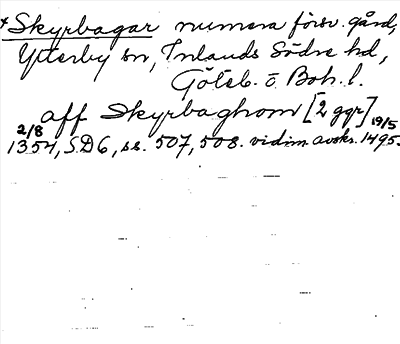 * Skyrbagar numera försv. gård,
Ytterby sn, Inlands Södre hd,
Göteb. o. Boh. l.
aff Skyrbaghom [2 ggr]
2/8 1354, SD6, ss. 507, 508. vidim. avskr. 19/5 1495.